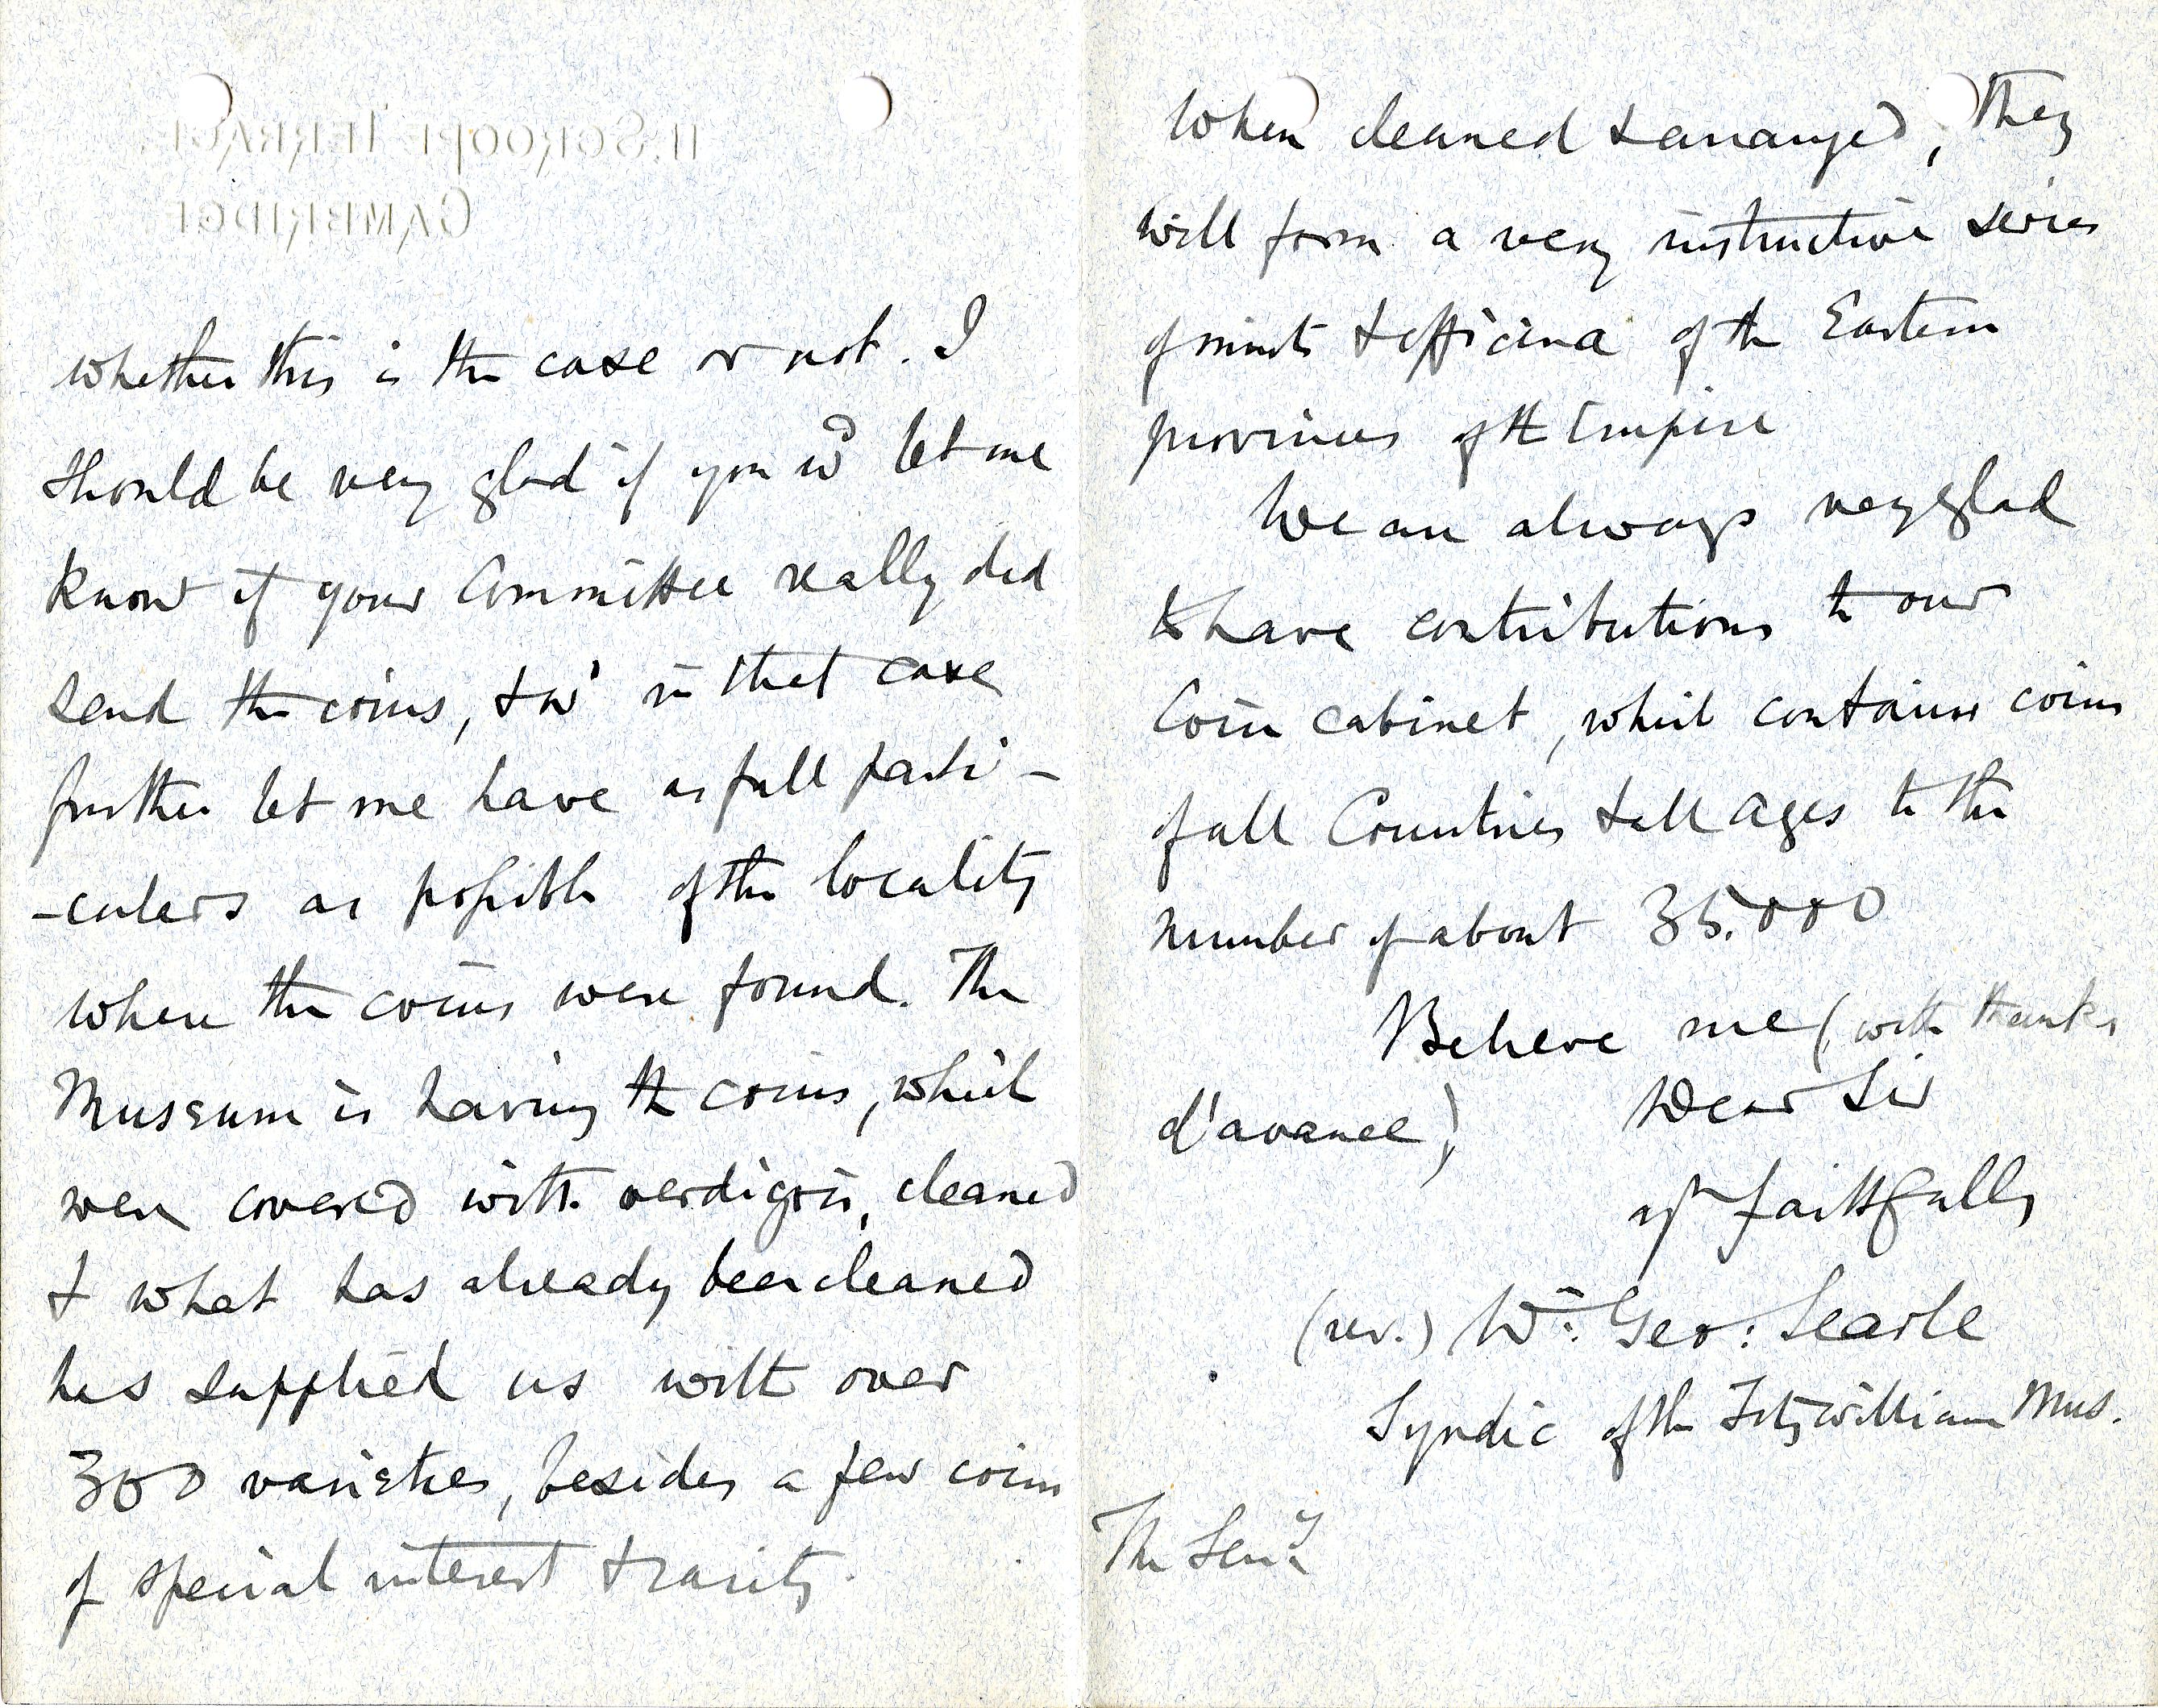 11. SCROOPE TERRACE,
CAMBRIDGE
whether this is the case or not. I
should be very glad if you wd let me
know if your Committee really did
send the coins, & wd in that case
further let me have as full parti-
-culars as possible of the locality
where the coins were found. The
Museum is having the coins, which
were covered with verdigris, cleaned
& what has already been cleaned
has supplied us with over
300 varieties, besides a few coins
of special interest & rarity.
When cleaned & arranged, they
will form a very instructive series
of mints & officina of the Eastern
provinces of the Empire
We are always very glad
to have contributions to our
Coin cabinet, which contains coins
of all Countries & all ages to the
number of about 35.000
Believe me (with thanks
d'avance) Dear Sir
yrs faithfully
(rev.) Wm: Geo: Searle
Syndic of the Fitzwilliam Mus.
The Secy